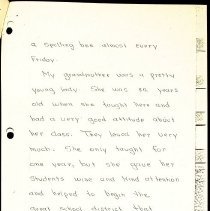 a spelling bee almost every
Friday.
My grandmother was a pretty
young lady. She was 20 years
old when she taught here and
had a very good attitude about
her class. They loved her very
much. She only taught for
one year, but she gave her
students wise and kind attention
and helped to begin the
great school district that